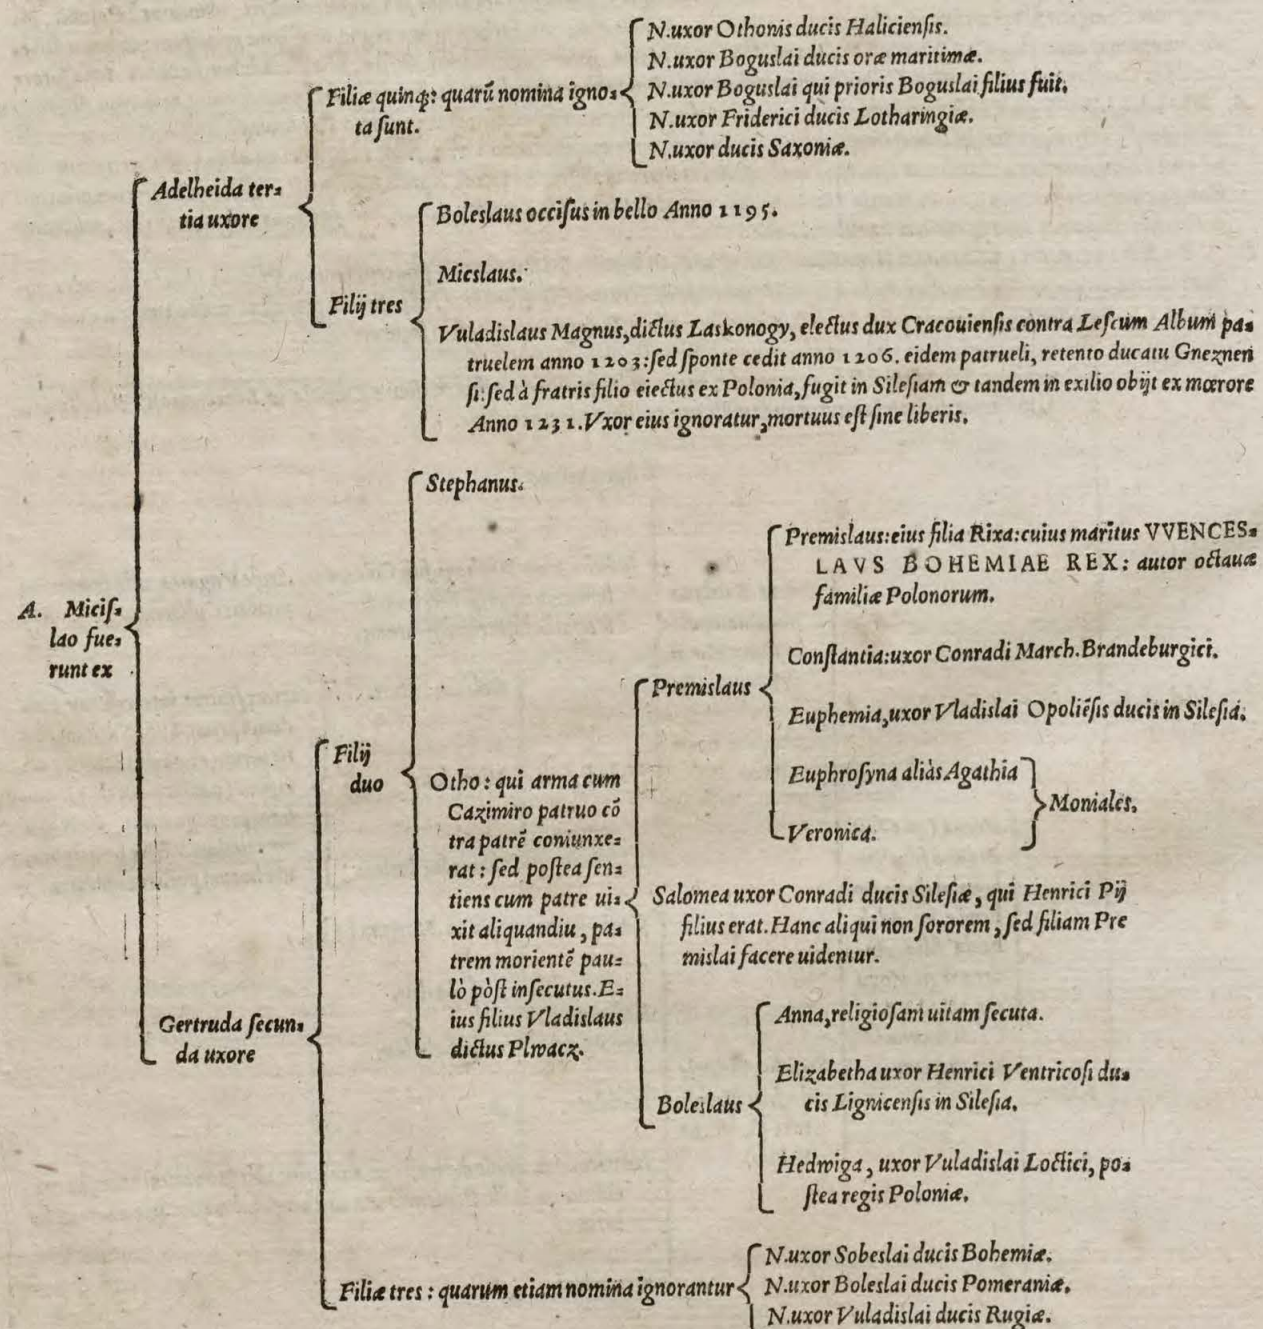 N.uxor Othonis ducis Haliciensis.
N.uxor Boguslai ducis oræ maritimæ.
Filiæ quinq;: quarū nomina igno=
N.uxor Boguslai qui prioris Boguslai filius fuit.
ta sunt.
N.uxor Friderici ducis Lotharingiæ.
N.uxor ducis Saxoniæ.
Adelheida ter=
tia uxore
Filij tres
Boleslaus occisus in bello Anno 1195.
Micslaus.
Vuladislaus Magnus, dictus Laskonogy, electus dux Cracouiensis contra Lescum Album pa=
truelem anno 1203: sed sponte cedit anno 1206. eidem patrueli, retento ducatu Gneznen
si: sed à fratris filio eiectus ex Polonia, fugit in Silesiam & tandem in exilio obijt ex mœrore
Anno 1231. Vxor eius ignoratur, mortuus est sine liberis.
A. Micis=
lao fue=
runt ex
Gertruda secun=
da uxore
Filij
duo
Stephanus.
Otho: qui arma cum
Cazimiro patruo cō
tra patrē coniunxe=
rat: sed postea sen=
tiens cum patre ui=
xit aliquandiu, pa=
trem morientē pau=
lò pòst insecutus. E=
ius filius Vladislaus
dictus Plwacz.
Premislaus
Premislaus: eius filia Rixa: cuius maritus VVENCES=
LAVS BOHEMIAE REX: autor octauæ
familiæ Polonorum.
Constantia: uxor Conradi March. Brandeburgici.
Euphemia, uxor Vladislai Opoliēsis ducis in Silesia.
Euphrosyna aliàs Agathia
Veronica.
Moniales.
Salomea uxor Conradi ducis Silesiæ, qui Henrici Pij
filius erat. Hanc aliqui non sororem, sed filiam Pre
mislai facere uidentur.
Boleslaus
Anna, religiosam uitam secuta.
Elizabetha uxor Henrici Ventricosi du=
cis Lignicensis in Silesia.
Hedwiga, uxor Vuladislai Loctici, po=
stea regis Poloniæ.
Filiæ tres: quarum etiam nomina ignorantur
N.uxor Sobeslai ducis Bohemiæ.
N.uxor Boleslai ducis Pomeraniæ.
N.uxor Vuladislai ducis Rugiæ.